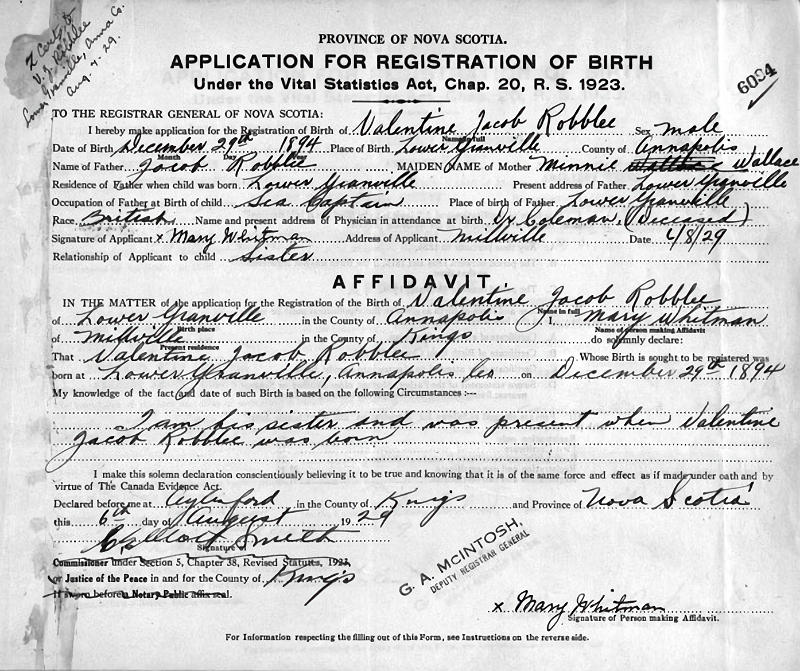 2 Cert. to
V. J. Robblee
Lower Granville, Anna Co.
Aug. 7. 29.
PROVINCE OF NOVA SCOTIA.
APPLICATION FOR REGISTRATION OF BIRTH
Under the Vital Statistics Act, Chap. 20, R. S. 1923.
6094
TO THE REGISTRAR GENERAL OF NOVA SCOTIA:
I hereby make application for the Registration of Birth of Valentine Jacob Robblee Sex male
Name in full
Date of Birth December 29th 1894 Place of Birth Lower Granville County of Annapolis
Month Day Year
Name of Father Jacob Robblee MAIDEN NAME of Mother Minnie Wallace
Residence of Father when child was born Lower Granville Present address of Father Lower Granville
Occupation of Father at Birth of child Sea Captain Place of birth of Father Lower Granville
Race British Name and present address of Physician in attendance at birth Dr Coleman, (Deceased)
Signature of Applicant x Mary Whitman Address of Applicant Millville Date 4/8/29
Relationship of Applicant to child Sister
AFFIDAVIT
IN THE MATTER of the application for the Registration of the Birth of Valentine Jacob Robblee
Name in full
of Lower Granville in the County of Annapolis I, Mary Whitman
Birth place Name of person making Affidavit
of Millville in the County of Kings do solemnly declare:
Present residence
That Valentine Jacob Robblee Whose Birth is sought to be registered was
born at Lower Granville, Annapolis Co on December 29th 1894
My knowledge of the fact and date of such Birth is based on the following Circumstances :—
I am his sister and was present when Valentine
Jacob Robblee was born
I make this solemn declaration conscientiously believing it to be true and knowing that it is of the same force and effect as if made under oath and by
virtue of The Canada Evidence Act.
Declared before me at Aylesford in the County of Kings and Province of Nova Scotia
this 6th day of August 1929
Smith
Signature of
Commissioner under Section 5, Chapter 38, Revised Statutes, 1923,
or Justice of the Peace in and for the County of Kings
If sworn before a Notary Public affix seal.
G. A. McINTOSH,
DEPUTY REGISTRAR GENERAL
x Mary Whitman
Signature of Person making Affidavit.
For Information respecting the filling out of this Form, see Instructions on the reverse side.